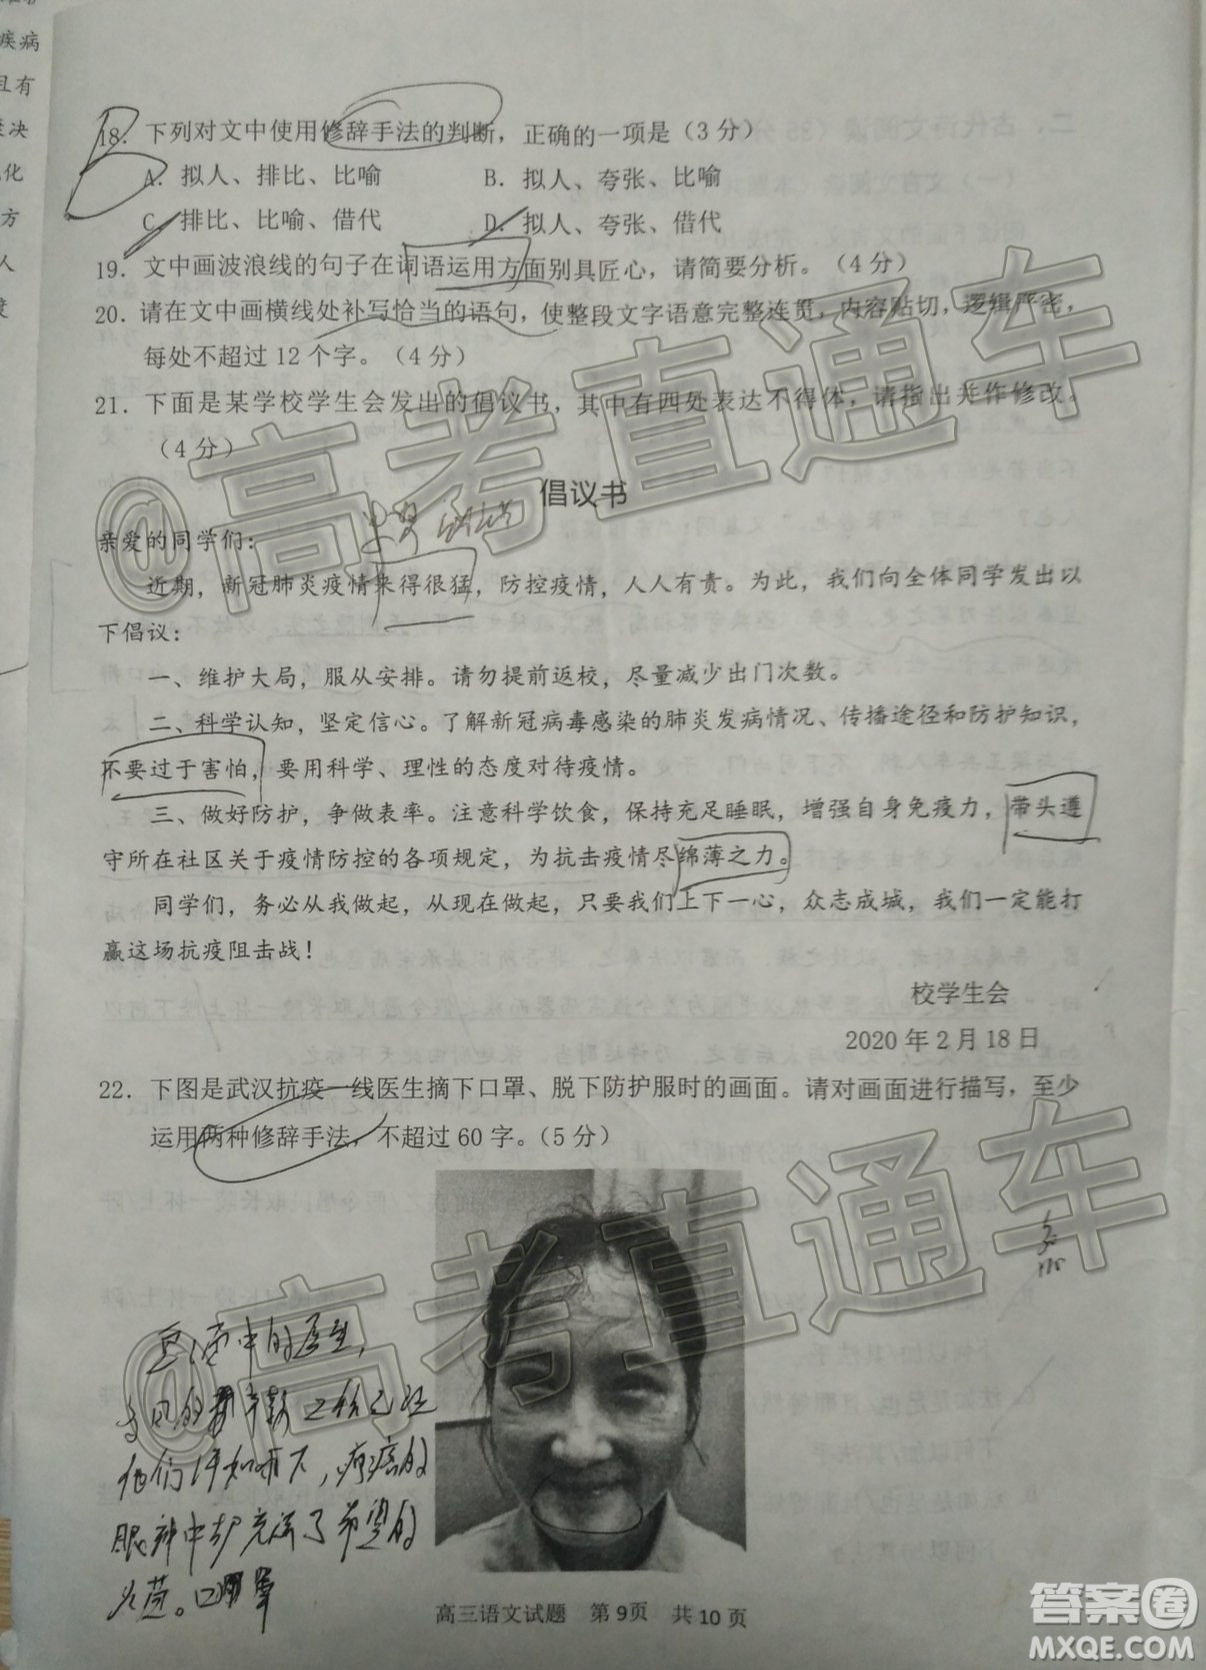 疾病
且有
决
化
方
人
18．下列对文中使用修辞手法的判断，正确的一项是（3 分）
A．拟人、排比、比喻　　B．拟人、夸张、比喻
C．排比、比喻、借代　　D．拟人、夸张、借代
19．文中画波浪线的句子在词语运用方面别具匠心，请简要分析。（4 分）
20．请在文中画横线处补写恰当的语句，使整段文字语意完整连贯，内容贴切，逻辑严密，
每处不超过 12 个字。（4 分）
21．下面是某学校学生会发出的倡议书，其中有四处表达不得体，请指出并作修改。
（4 分）
倡议书
亲爱的同学们：
近期，新冠肺炎疫情来得很猛，防控疫情，人人有责。为此，我们向全体同学发出以
下倡议：
一、维护大局，服从安排。请勿提前返校，尽量减少出门次数。
二、科学认知，坚定信心。了解新冠病毒感染的肺炎发病情况、传播途径和防护知识，
不要过于害怕，要用科学、理性的态度对待疫情。
三、做好防护，争做表率。注意科学饮食，保持充足睡眠，增强自身免疫力，带头遵
守所在社区关于疫情防控的各项规定，为抗击疫情尽绵薄之力。
同学们，务必从我做起，从现在做起，只要我们上下一心，众志成城，我们一定能打
赢这场抗疫阻击战！
校学生会
2020 年 2 月 18 日
22．下图是武汉抗疫一线医生摘下口罩、脱下防护服时的画面。请对画面进行描写，至少
运用两种修辞手法，不超过 60 字。（5 分）
中的医生，
他们
眼神中却充满了希望的
高三语文试题　第 9页　共 10 页
@高考直通车
高考直通车
答案圈
MXQE.COM